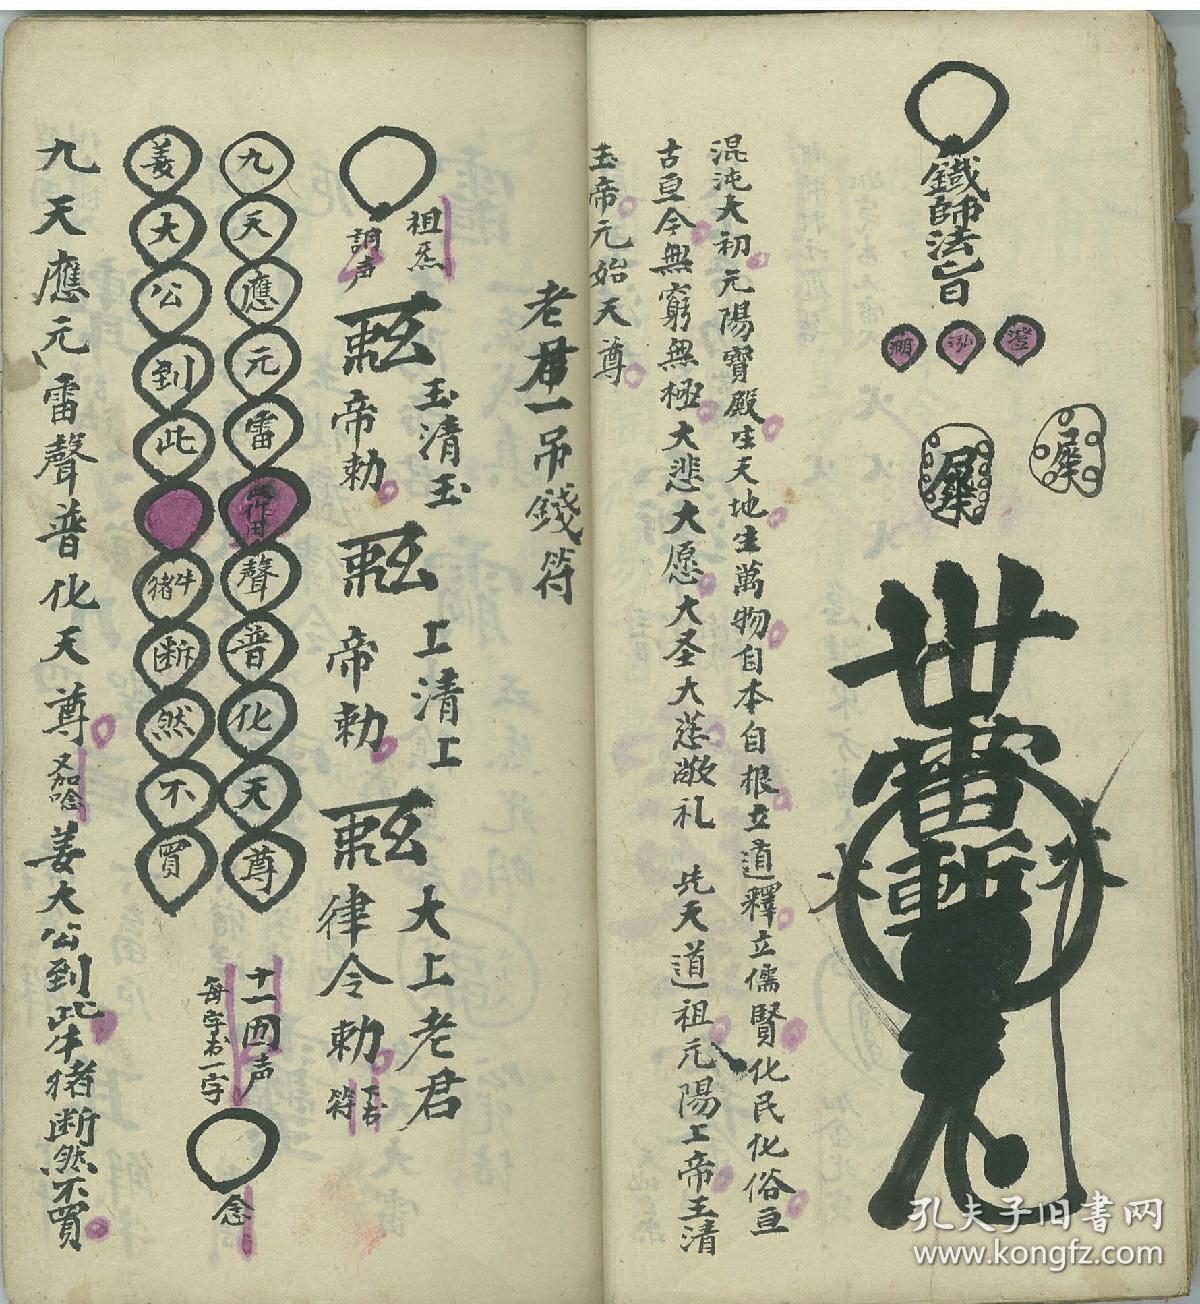 鐵師法旨
澄
泓
混沌大初元陽寶殿生天地生萬物自本自根立道釋立儒賢化民化俗亘
古亘今無窮無極大悲大愿大圣大慈敬礼 先天道祖元陽上帝玉清
玉帝元始天尊
老君一吊錢符
祖炁
玉清玉
帝勅
上清上
帝勅
大上老君
律令勅
下右
符
九天應元雷
聲普化天尊
姜大公到此
牛猪断然不買
十一回声
每字书一字
念
九天應元雷聲普化天尊
又加唸
姜大公到此牛猪断然不買
孔夫子旧书网
www.kongfz.com